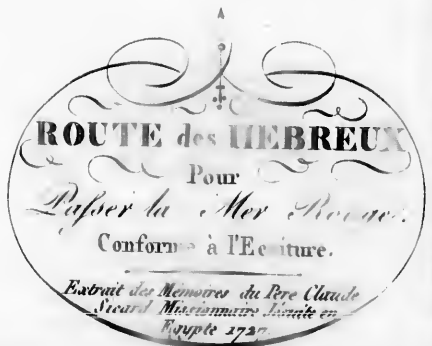 ROUTE des HEBREUX
Pour
Passer la Mer Rouge.
Conforme à l'Ecriture.
Extrait des Mémoires du Père Claude
Sicard Missionnaire Jésuite en
Egypte 1727.